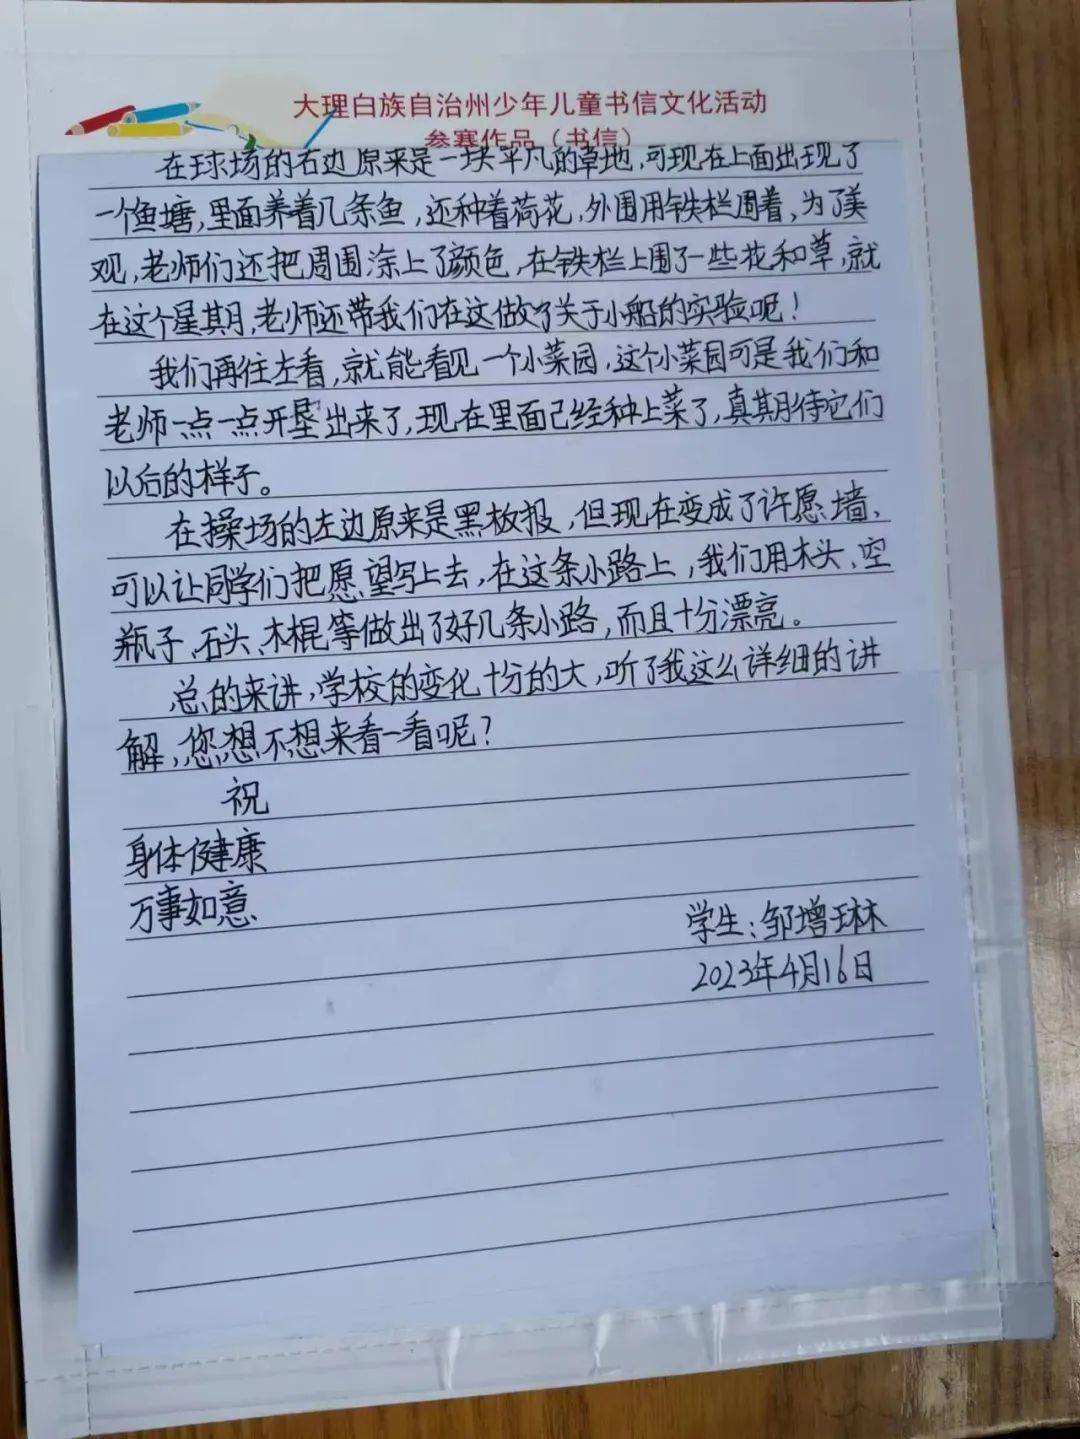 大理白族自治州少年儿童书信文化活动
参赛作品（书信）
在球场的右边原来是一块平凡的草地，可现在上面出现了
一个鱼塘，里面养着几条鱼，还种着荷花，外围用铁栏围着，为了美
观，老师们还把周围涂上了颜色，在铁栏上围了一些花和草，就
在这个星期，老师还带我们在这做了关于小船的实验呢！
我们再往左看，就能看见一个小菜园，这个小菜园可是我们和
老师一点一点开垦出来了，现在里面已经种上菜了，真期待它们
以后的样子。
在操场的左边原来是黑板报，但现在变成了许愿墙，
可以让同学们把愿望写上去，在这条小路上，我们用木头、空
瓶子、石头、木棍等做出了好几条小路，而且十分漂亮。
总的来讲，学校的变化十分的大，听了我这么详细的讲
解，您想不想来看一看呢？
祝
身体健康
万事如意
学生：邹增琳
2023年4月16日